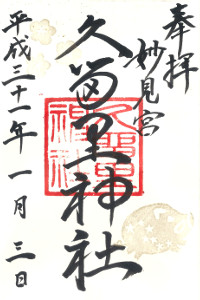 奉拝
妙見宮
久留里神社
平成三十一年一月三日